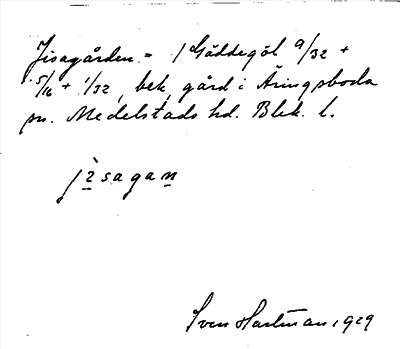 Jisagården = 1 Gäddegöl 9/32 +
5/16 + 1/32, bek. gård i Äringsboda
sn. Medelstads hd. Blek. l.
j`2sagan
Sven Hartman 1929